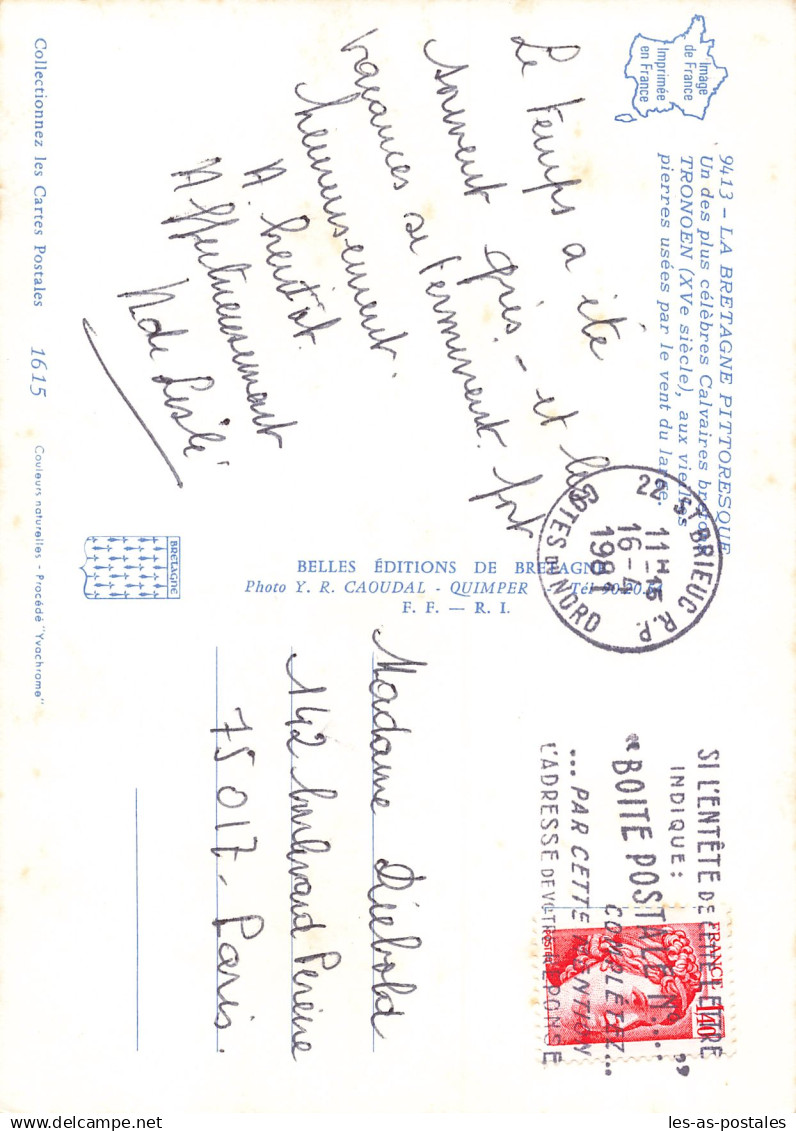 Image
de France
Imprimée
en France
9413 - LA BRETAGNE PITTORESQUE
Un des plus célèbres Calvaires bretons
TRONOEN (XVe siècle), aux vieilles
pierres usées par le vent du large.
Le temps a été
souvent gris - et les
vacances se terminent fort
heureusement.
A bientôt.
Affectueusement
Collectionnez les Cartes Postales 1615
Couleurs naturelles - Procédé "Yvachrome"
BRETAGNE
BELLES ÉDITIONS DE BRETAGNE
Photo Y. R. CAOUDAL - QUIMPER - Tél 90.20.
F. F. — R. I.
22 ST BRIEUC R.P.
11H15
16-4
1981
COTES DU NORD
SI L'ENTÊTE DE CETTE LETTRE
INDIQUE :
"BOITE POSTALE N°....,,
COMPLÉTEZ...
...PAR CETTE MENTION
L'ADRESSE DE VOTRE RÉPONSE
FRANCE 1,40
POSTES
Madame Diebold
142 boulevard Pereire
75017 - Paris.
les-as-postales